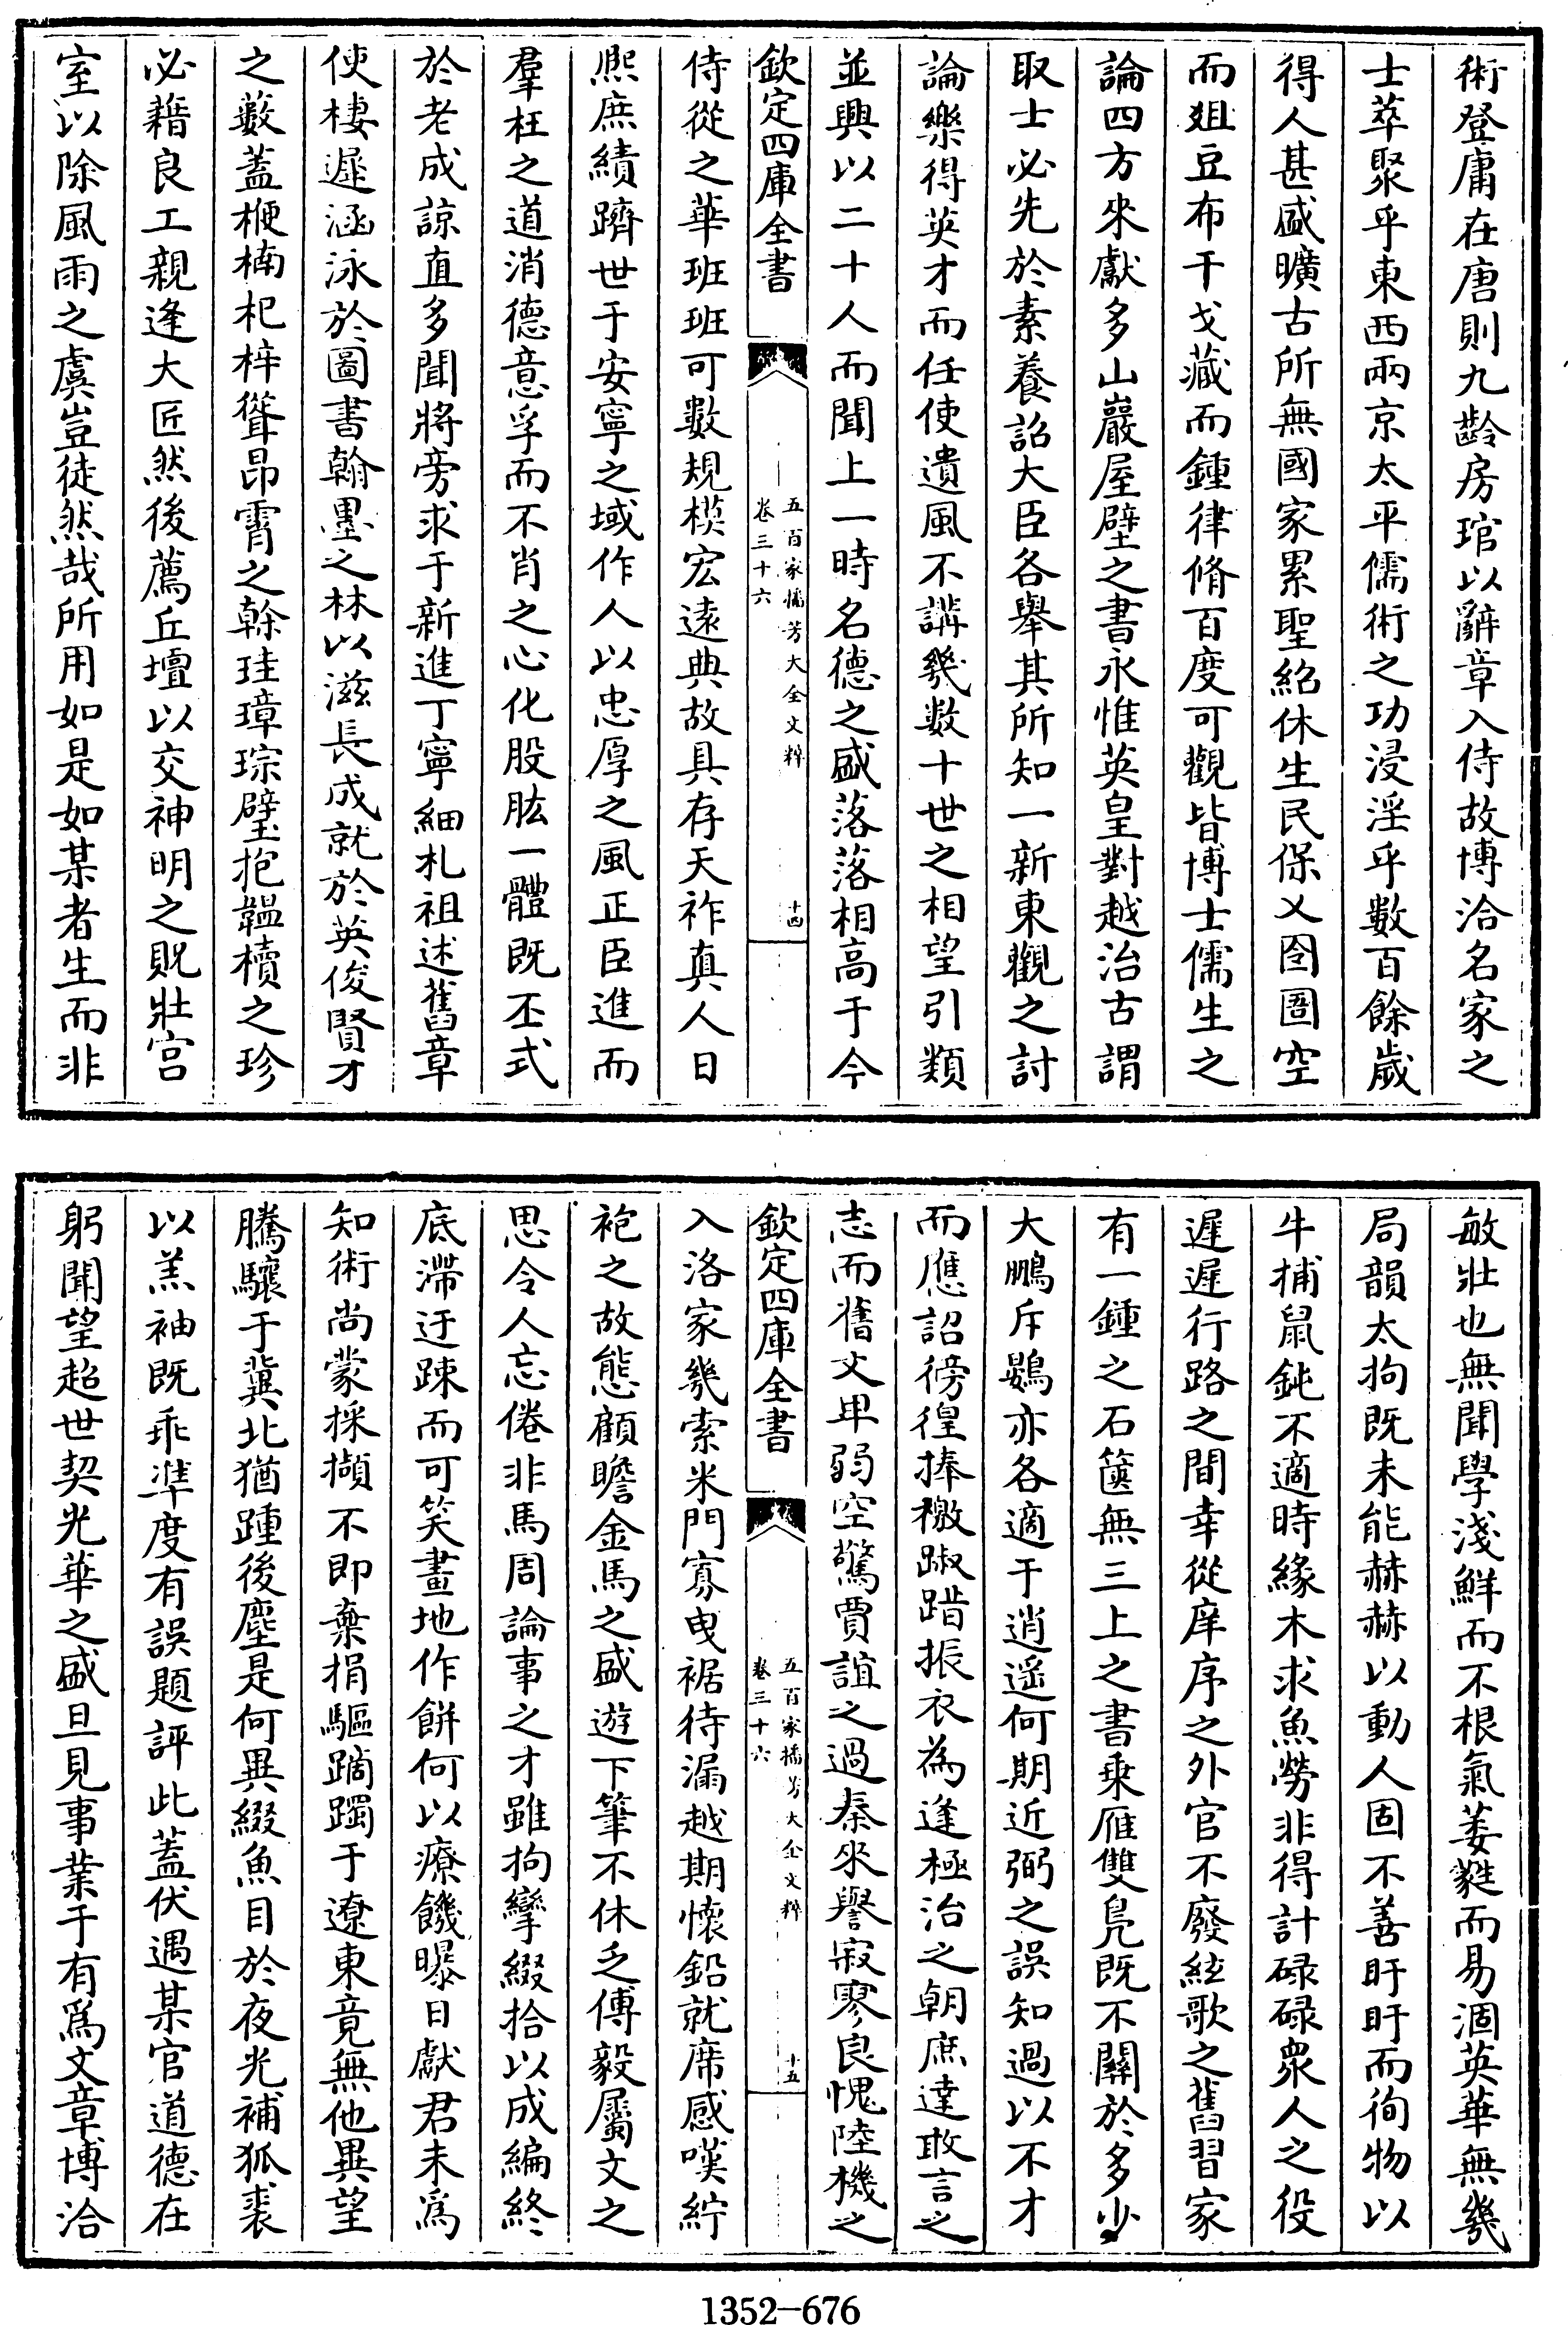 術登庸在唐則九齡房琯以辭章入侍故博洽名家之
士萃聚乎東西兩京太平儒術之功浸淫乎數百餘歲
得人甚盛曠古所無國家累聖紹休生民保乂囹圄空
而俎豆布干戈藏而鍾律脩百度可觀皆博士儒生之
論四方來獻多山巖屋壁之書永惟英皇對越治古謂
取士必先於素養詔大臣各舉其所知一新東觀之討
論樂得英才而任使遺風不講幾數十世之相望引類
並興以二十人而聞上一時名德之盛落落相高于今
欽定四庫全書
五百家播芳大全文粹
卷三十六
十四
侍從之華班班可數規模宏遠典故具存天祚真人日
熈庶績躋世于安寧之域作人以忠厚之風正臣進而
羣枉之道消德意孚而不肖之心化股肱一體既丕式
於老成諒直多聞將旁求于新進丁寧細札祖述舊章
使棲遲涵泳於圖書翰墨之林以滋長成就於英俊賢才
之藪蓋楩楠杞梓聳昂霄之榦珪璋琮璧抱韞櫝之珍
必藉良工親逢大匠然後薦丘壇以交神明之貺壯宫
室以除風雨之虞豈徒然哉所用如是如某者生而非
敏壯也無聞學淺鮮而不根氣萎蕤而易涸英華無幾
局韻太拘既未能赫赫以動人固不善盱盱而徇物以
牛捕鼠鈍不適時緣木求魚勞非得計碌碌衆人之役
遲遲行路之間幸從庠序之外官不廢絃歌之舊習家
有一鍾之石篋無三上之書乗雁雙鳧既不關於多少
大鵬斥鷃亦各適于逍遥何期近弼之誤知過以不才
而應詔徬徨捧檄踧踖振衣為逢極治之朝庶達敢言之
志而舊文卑弱空驚賈誼之過秦來譽寂寥良愧陸機之
欽定四庫全書
五百家播芳大全文粹
卷三十六
十五
入洛家幾索米門寡曳裾待漏越期懷鉛就席感嘆紵
袍之故態顧瞻金馬之盛遊下筆不休乏傅毅屬文之
思令人忘倦非馬周論事之才雖拘攣綴拾以成編終
底滯迂踈而可笑畫地作餅何以療饑曝日獻君未爲
知術尚蒙採擷不即棄捐驅蹢躅于遼東竟無他異望
騰驤于冀北猶踵後塵是何異綴魚目於夜光補狐裘
以羔袖既乖準度有誤題評此蓋伏遇某官道德在
躬聞望超世契光華之盛旦見事業于有爲文章博洽
1352-676